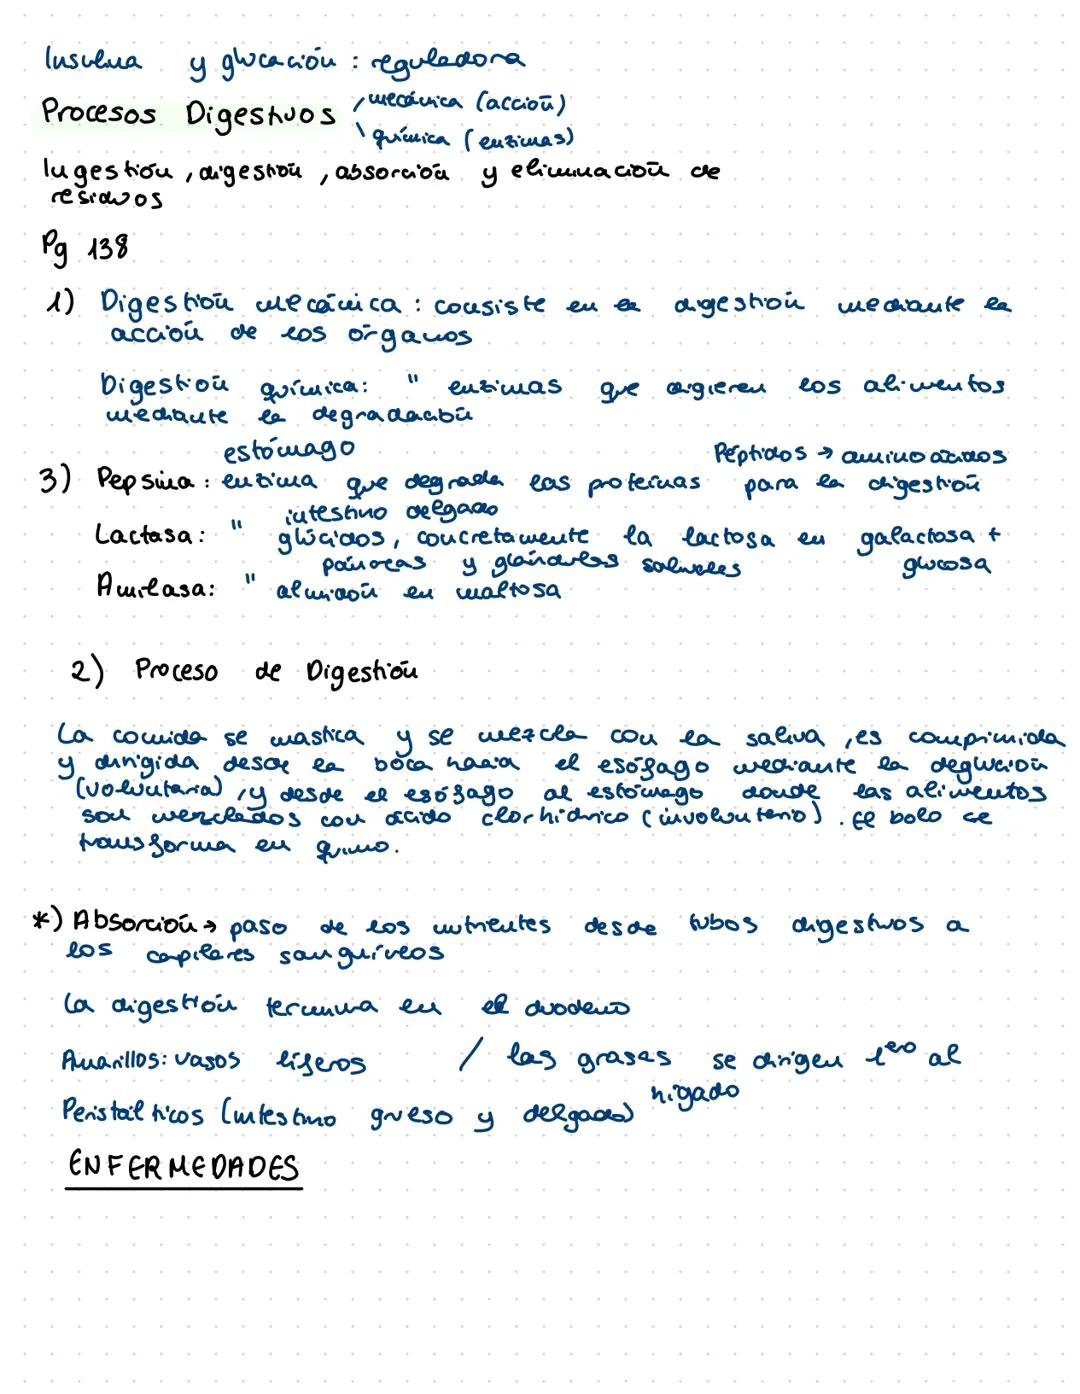 Insulina y glucación : reguladora
Procesos Digestivos / mecánica (acción)
\ química (enzimas)
Ingestión, digestión, absorción y eliminación de
residuos
Pg 138
1) Digestión mecánica : consiste en la digestión mediante la
acción de los órganos
Digestión química: " enzimas que digieren los alimentos
mediante la degradación
estómago Péptidos → aminoácidos
3) Pepsina : enzima que degrada las proteínas para la digestión
intestino delgado
Lactasa: " glúcidos, concretamente la lactosa en galactosa +
páncreas y glándulas salivales glucosa
Amilasa: " almidón en maltosa
2) Proceso de Digestión
La comida se mastica y se mezcla con la saliva, es comprimida
y dirigida desde la boca hacia el esófago mediante la deglución
(voluntaria), y desde el esófago al estómago donde las alimentos
son mezclados con ácido clorhídrico (involuntario). El bolo se
transforma en quimo.
*) Absorción → paso de los nutrientes desde tubos digestivos a
los capilares sanguíneos
La digestión termina en el duodeno
Amarillos: vasos liferos / las grasas se dirigen 1ero al
hígado
Peristálticos (intestino grueso y delgado)
ENFERMEDADES